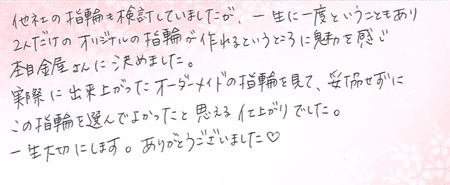 他社の指輪も検討していましたが、一生に一度ということもあり
2人だけのオリジナルの指輪が作れるというところに魅力を感じ
杢目金屋さんに決めました。
実際に出来上がったオーダーメイドの指輪を見て、妥協せずに
この指輪を選んでよかったと思える仕上がりでした。
一生大切にします。ありがとうございました♡